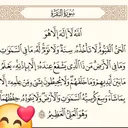 سُورَةُ البَقَرَةِ
اللَّهُ لَا إِلَٰهَ إِلَّا هُوَ
الْحَيُّ الْقَيُّومُ لَا تَأْخُذُهُ سِنَةٌ وَلَا نَوْمٌ لَّهُ مَا فِي السَّمَاوَاتِ
وَمَا فِي الْأَرْضِ مَن ذَا الَّذِي يَشْفَعُ عِندَهُ إِلَّا بِإِذْنِهِ يَعْلَمُ
مَا بَيْنَ أَيْدِيهِمْ وَمَا خَلْفَهُمْ وَلَا يُحِيطُونَ بِشَيْءٍ مِّنْ عِلْمِهِ إِلَّا
بِمَا شَاءَ وَسِعَ كُرْسِيُّهُ السَّمَاوَاتِ وَالْأَرْضَ وَلَا يَئُودُهُ حِفْظُهُمَا
وَهُوَ الْعَلِيُّ الْعَظِيمُ